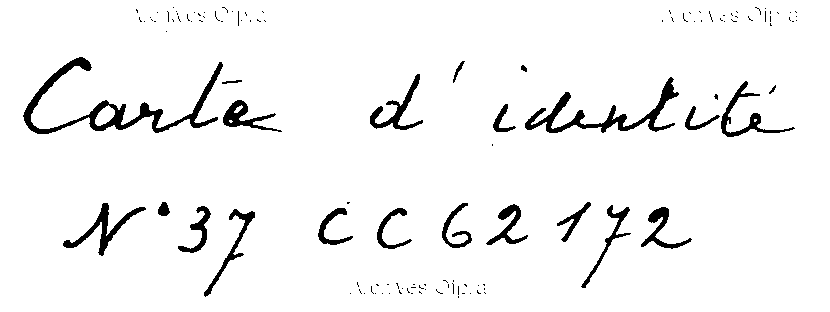 Archives Ofpra Archives Ofpra
Carte d'identité
N° 37 CC 62172
Archives Ofpra